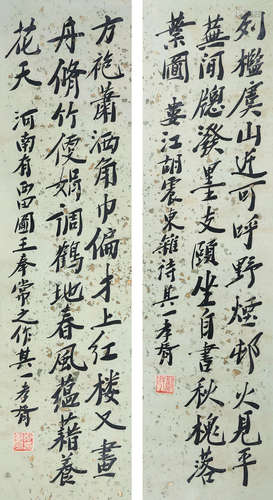 列檻虞山近可呼野煙邨火見平
蕪閒窗潑墨支頤坐自書秋槐落
葉圖 婁江胡震東雜詩其一孝胥
方袍蕭洒角巾偏才上紅樓又畫
舟脩竹便娟調鶴地春風蘊藉養
花天 河南有西田圖王奉常之作其 孝胥